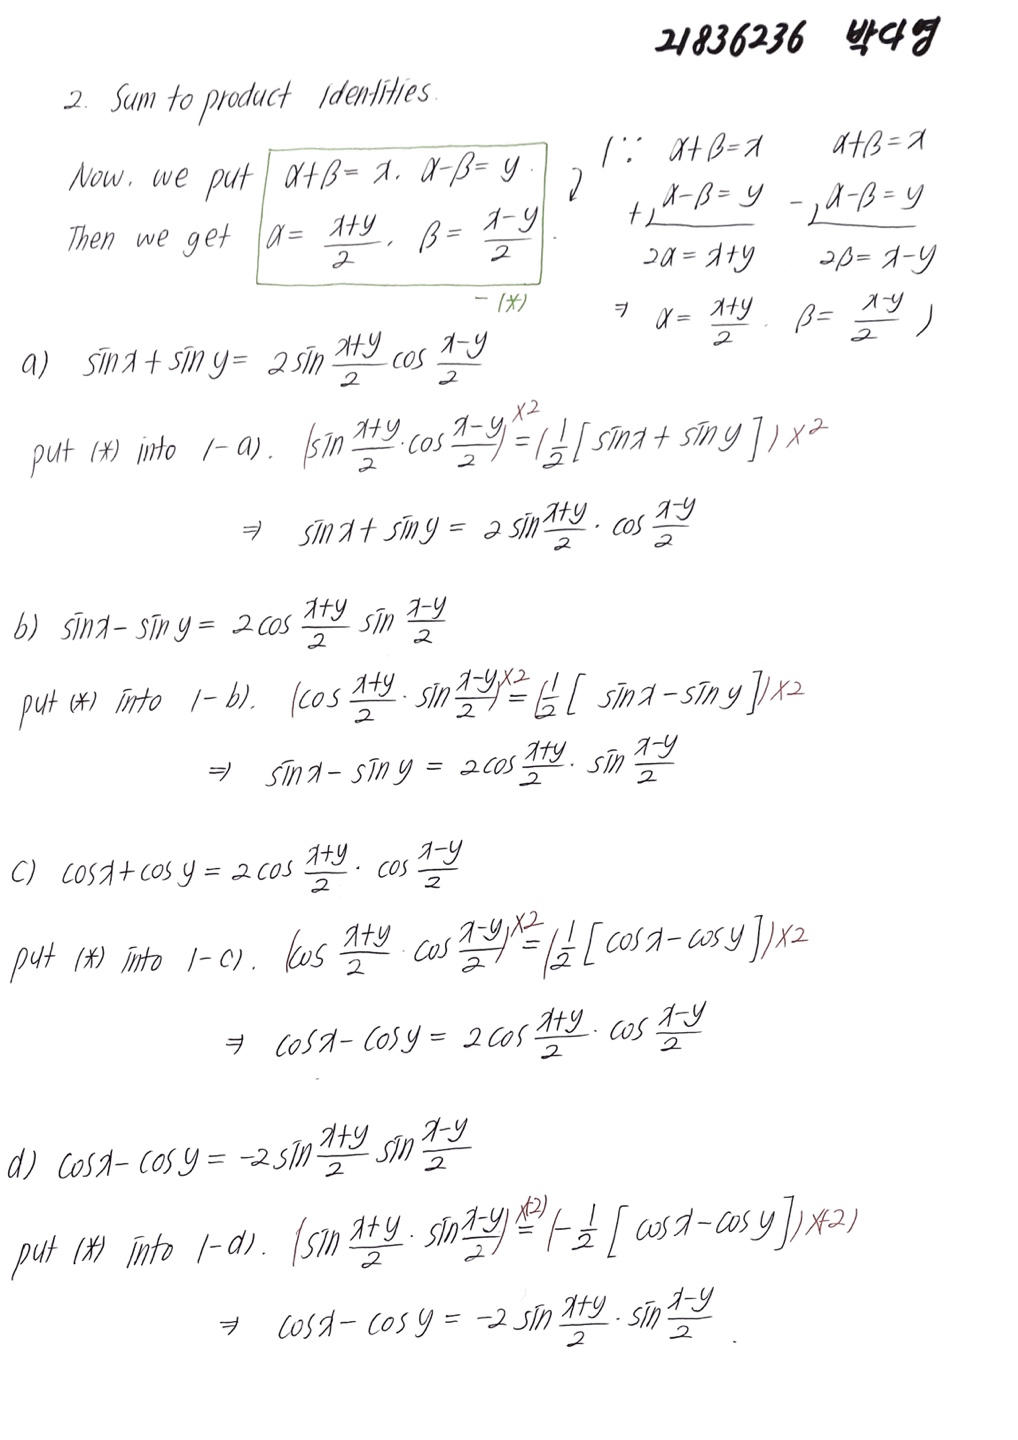 21836236 박다영
2. Sum to product Identities.
Now, we put α+β=x, α-β=y.
Then we get α= (x+y)/2, β= (x-y)/2.
-(*)
(∵ α+β=x α+β=x
+) α-β=y -) α-β=y
2α=x+y 2β=x-y
⇒ α= (x+y)/2. β= (x-y)/2 )
a) sinx+siny= 2sin (x+y)/2 cos (x-y)/2
put (*) into 1-a). (sin (x+y)/2 · cos (x-y)/2)×2 = (1/2 [sinx+siny])×2
⇒ sinx+siny = 2sin (x+y)/2 · cos (x-y)/2
b) sinx-siny= 2cos (x+y)/2 sin (x-y)/2
put (*) into 1-b). (cos (x+y)/2 · sin (x-y)/2)×2 = (1/2 [sinx-siny])×2
⇒ sinx-siny = 2cos (x+y)/2 · sin (x-y)/2
c) cosx+cosy= 2cos (x+y)/2 · cos (x-y)/2
put (*) into 1-c). (cos (x+y)/2 · cos (x-y)/2)×2 = (1/2 [cosx-cosy])×2
⇒ cosx-cosy= 2cos (x+y)/2 · cos (x-y)/2
d) cosx-cosy= -2sin (x+y)/2 sin (x-y)/2
put (*) into 1-d). (sin (x+y)/2 · sin (x-y)/2)×(-2) = (-1/2 [cosx-cosy])×(-2)
⇒ cosx-cosy= -2sin (x+y)/2 · sin (x-y)/2.